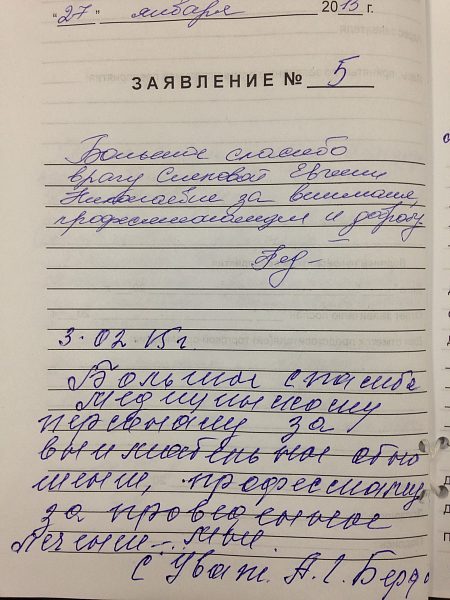 "27" января 2015 г.
ЗАЯВЛЕНИЕ № 5
Большое спасибо
врачу Евгении
Николаевне за внимание,
профессионализм и доброту
3.02 15 г
Большое спасибо
медицинскому
персоналу за
внимательное отно
шение, професионализм
за проведенное
лечение
С Уваж. А. Г.